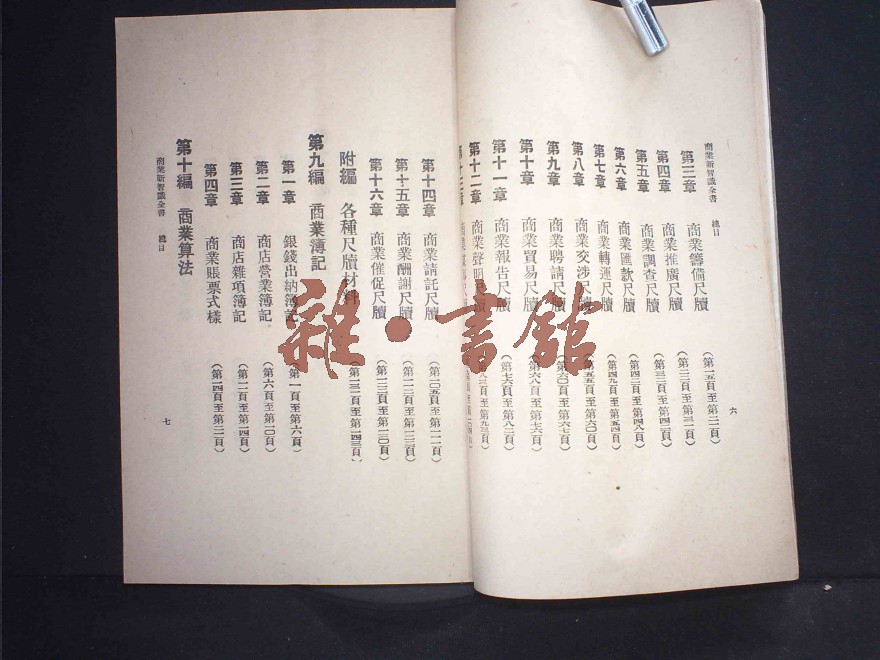 商業新智識全書 總目
第三章 商業籌備尺牘 (第一五頁至第二二頁)
第四章 商業推廣尺牘
第五章 商業調查尺牘
第六章 商業匯款尺牘
第七章 商業轉運尺牘 (第四九頁至第五四頁)
第八章 商業交涉尺牘 (第五五頁至第六〇頁)
第九章 商業聘請尺牘 (第六〇頁至第六七頁)
第十章 商業貿易尺牘 (第六八頁至第七六頁)
第十一章 商業報告尺牘 (第七六頁至第八二頁)
第十二章 商業聲明尺牘
六
第十四章 商業請託尺牘 (第一〇五頁至第一一二頁)
第十五章 商業酬謝尺牘
第十六章 商業催促尺牘
附編 各種尺牘材料
第九編 商業簿記
第一章 銀錢出納簿記 (第一頁至第六頁)
第二章 商店營業簿記 (第六頁至第一〇頁)
第三章 商店雜項簿記 (第一一頁至第一四頁)
第四章 商業賬票式樣 (第一四頁至第二二頁)
第十編 商業算法
商業新智識全書 總目
七
雜·書館